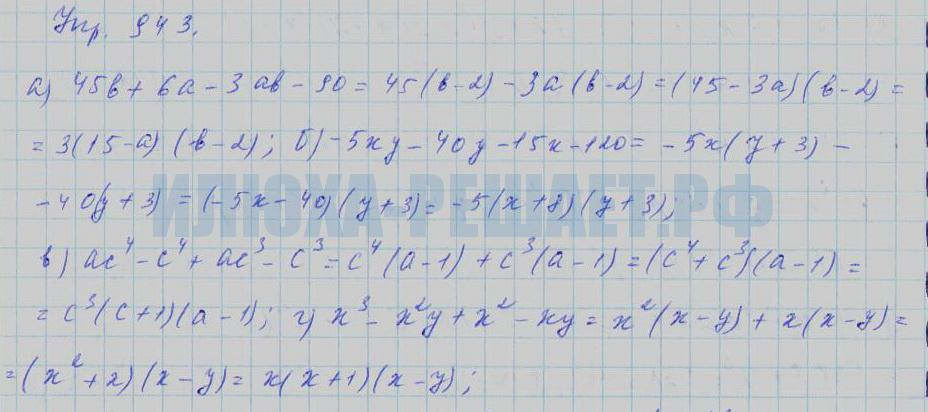 Упр. 943.
а) 45в + 6а - 3ав - 90 = 45(в-2) - 3а(в-2) = (45 - 3а)(в-2) =
= 3(15-а)(в-2); б) -5xy - 40y - 15x - 120 = -5x(y+3) -
-40(y+3) = (-5x - 40)(y+3) = -5(x+8)(y+3);
ИЛЮХА-РЕШАЕТ.РФ
в) ac⁴ - c⁴ + ac³ - c³ = c⁴(a-1) + c³(a-1) = (c⁴ + c³)(a-1) =
= c³(c+1)(a-1); г) x³ - x²y + x² - xy = x²(x-y) + x(x-y) =
= (x² + x)(x-y) = x(x+1)(x-y);